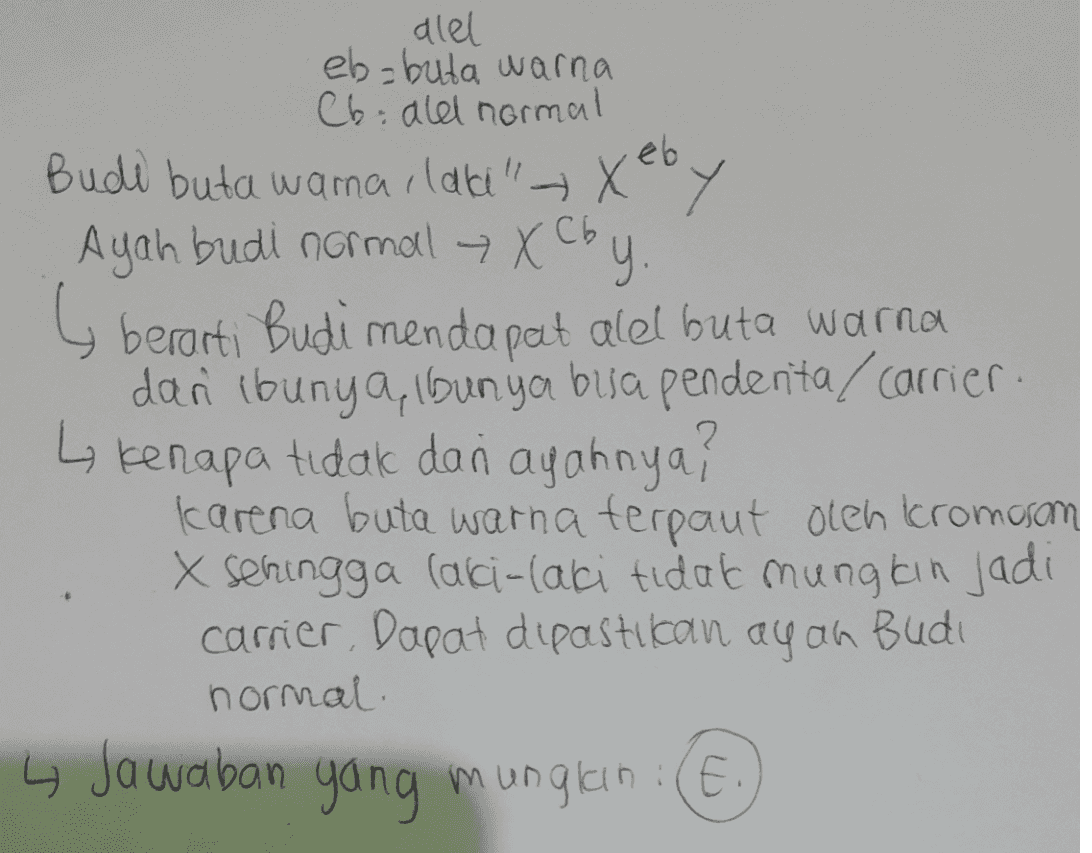 alel
eb = buta warna
Cb : alel normal
Budi buta warna, laki" → X^eb Y
Ayah budi normal → X^Cb y.
↳ berarti Budi mendapat alel buta warna
dari ibunya, ibunya bisa penderita/carrier.
↳ kenapa tidak dari ayahnya?
karena buta warna terpaut oleh kromosom
X sehingga laki-laki tidak mungkin jadi
carrier. Dapat dipastikan ayah Budi
normal.
↳ Jawaban yang mungkin : E.